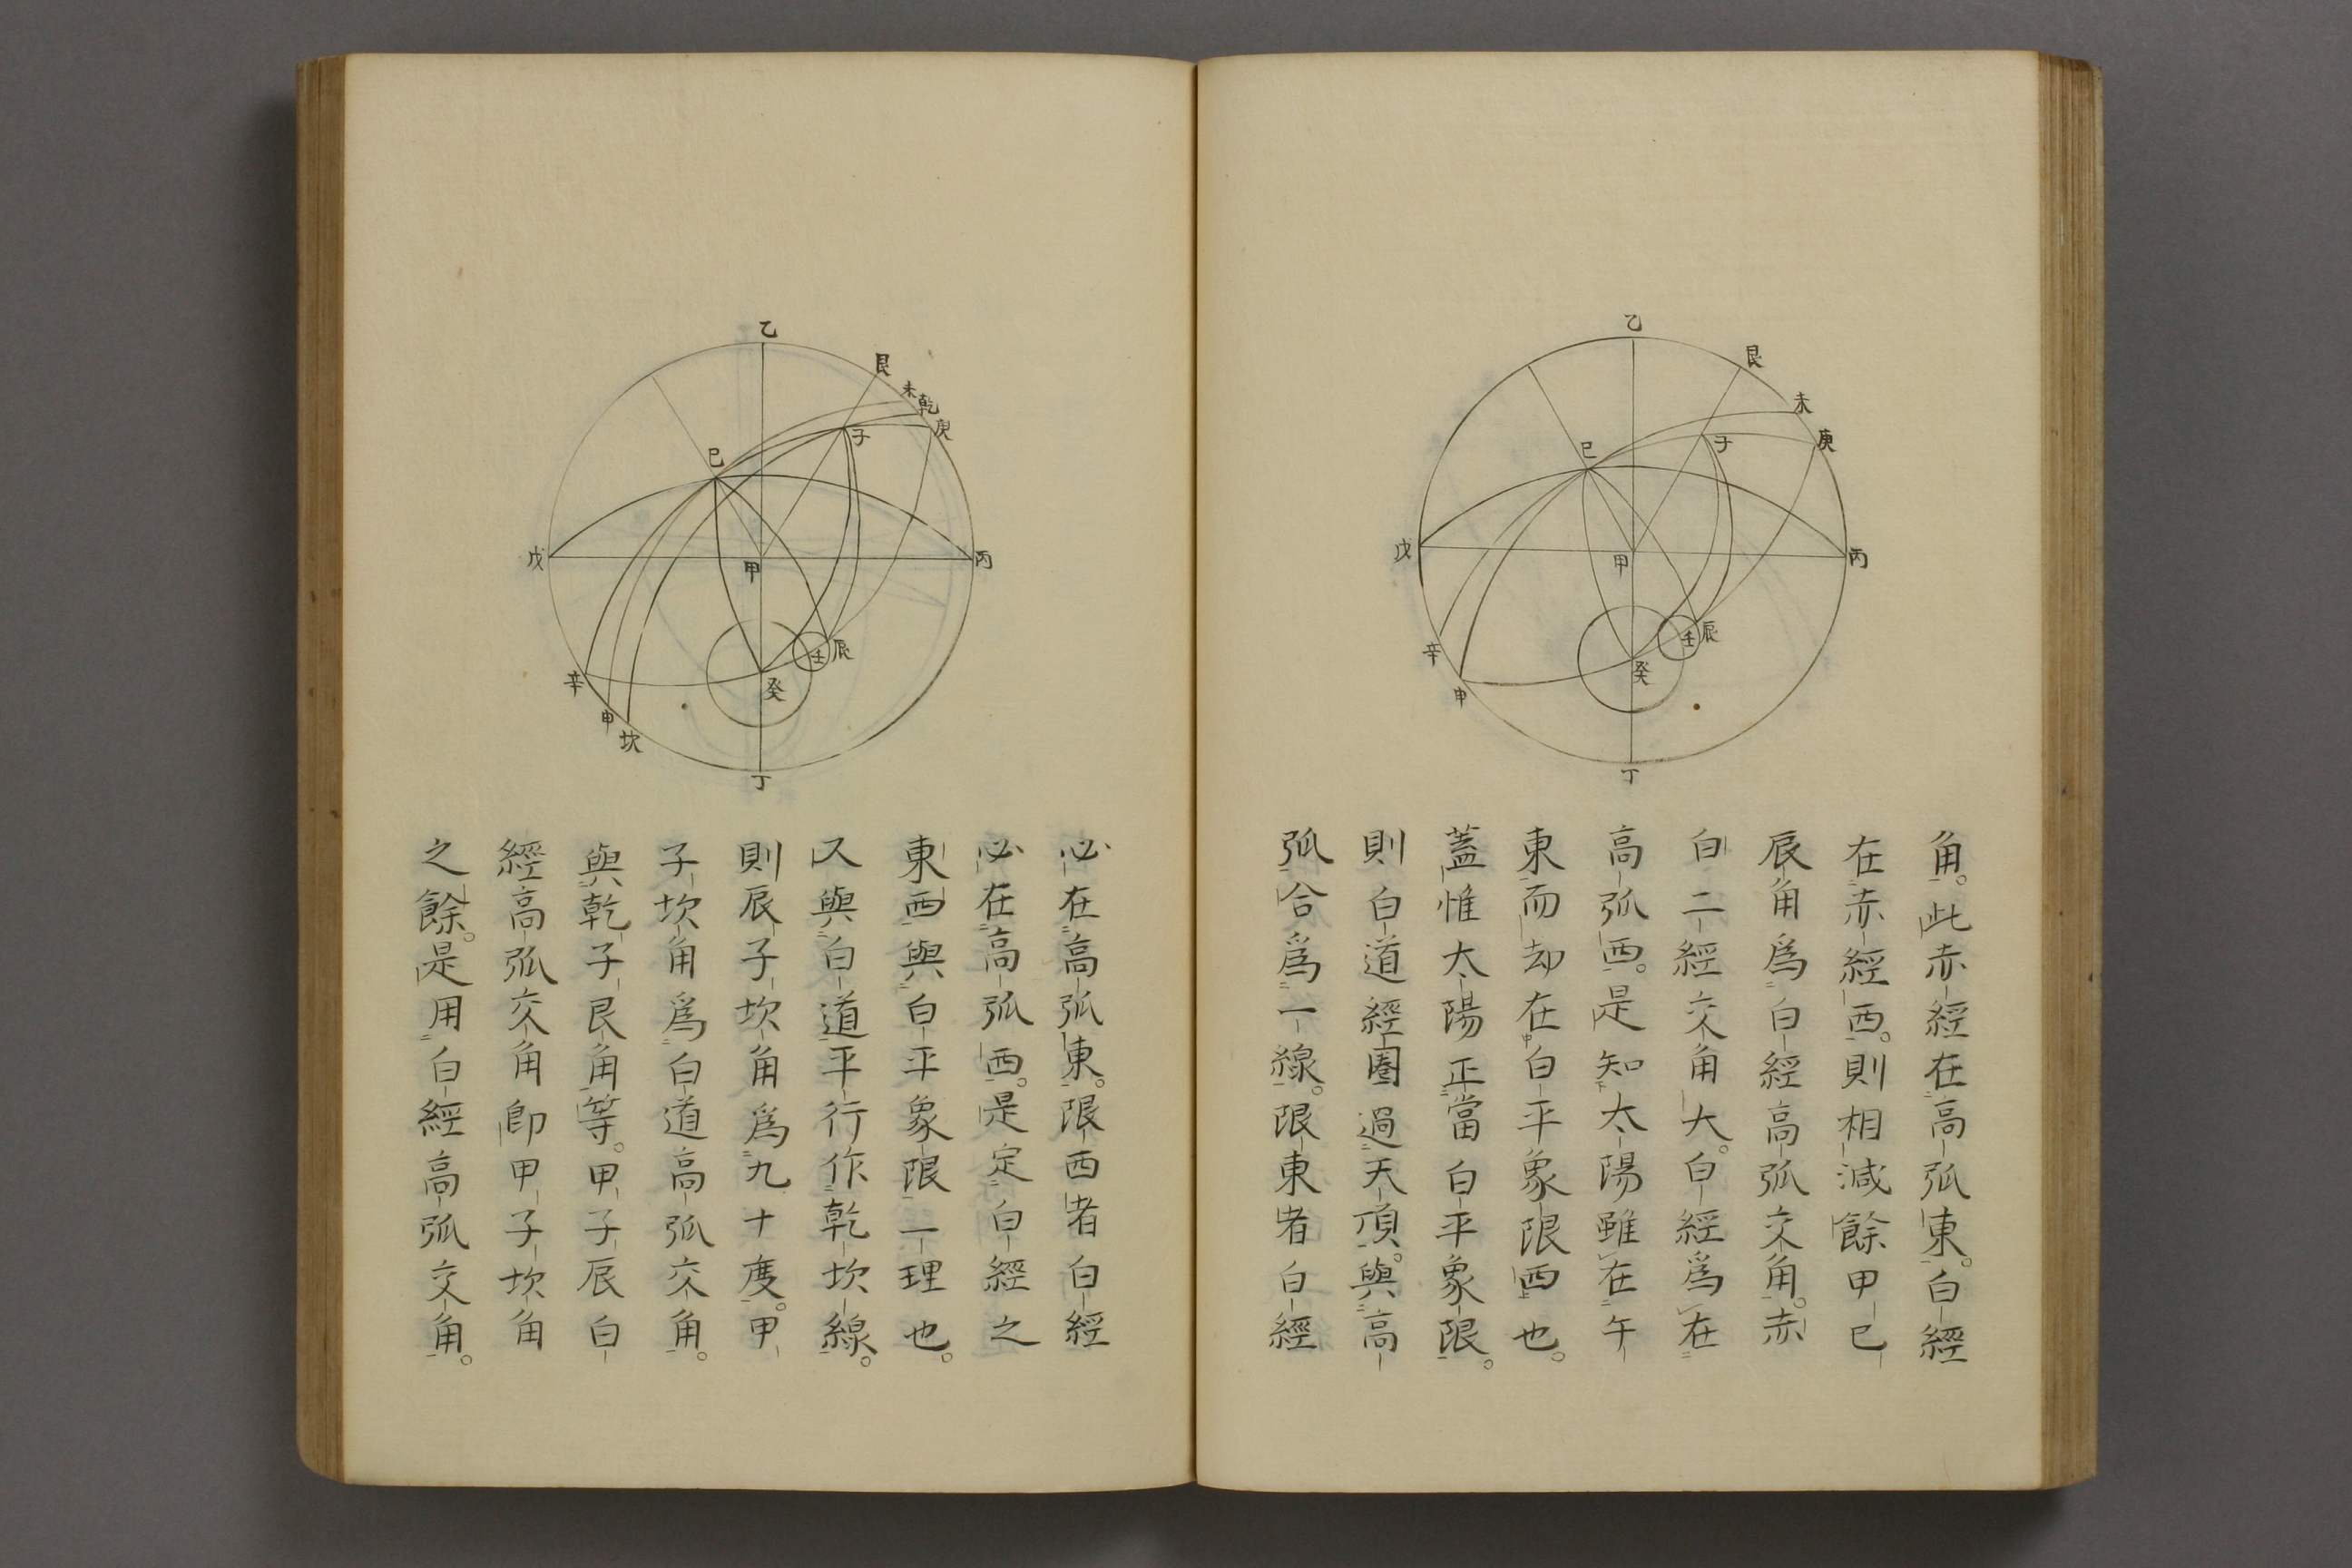 乙
艮
未
庚
子
巳
戊
甲
丙
辰
壬
辛
癸
申
丁
角。此赤經在高弧東。白經
在赤經西。則相減餘甲巳
辰角爲白經高弧交角。赤
白二經交角大。白經爲在
高弧西。是知太陽雖在午
東而却在白平象限西也。
蓋惟太陽正當白平象限。
則白道經圈過天頂。與高
弧合爲一線。限東者白經
乙
艮
未
乾
庚
子
巳
戊
甲
丙
辰
壬
辛
癸
申
坎
丁
必在高弧東。限西者白經
必在高弧西。是定白經之
東西與白平象限一理也。
又與白道平行作乾坎線。
則辰子坎角爲九十度。甲
子坎角爲白道高弧交角。
與乾子艮角等。甲子辰白
經高弧交角即甲子坎角
之餘。是用白經高弧交角。